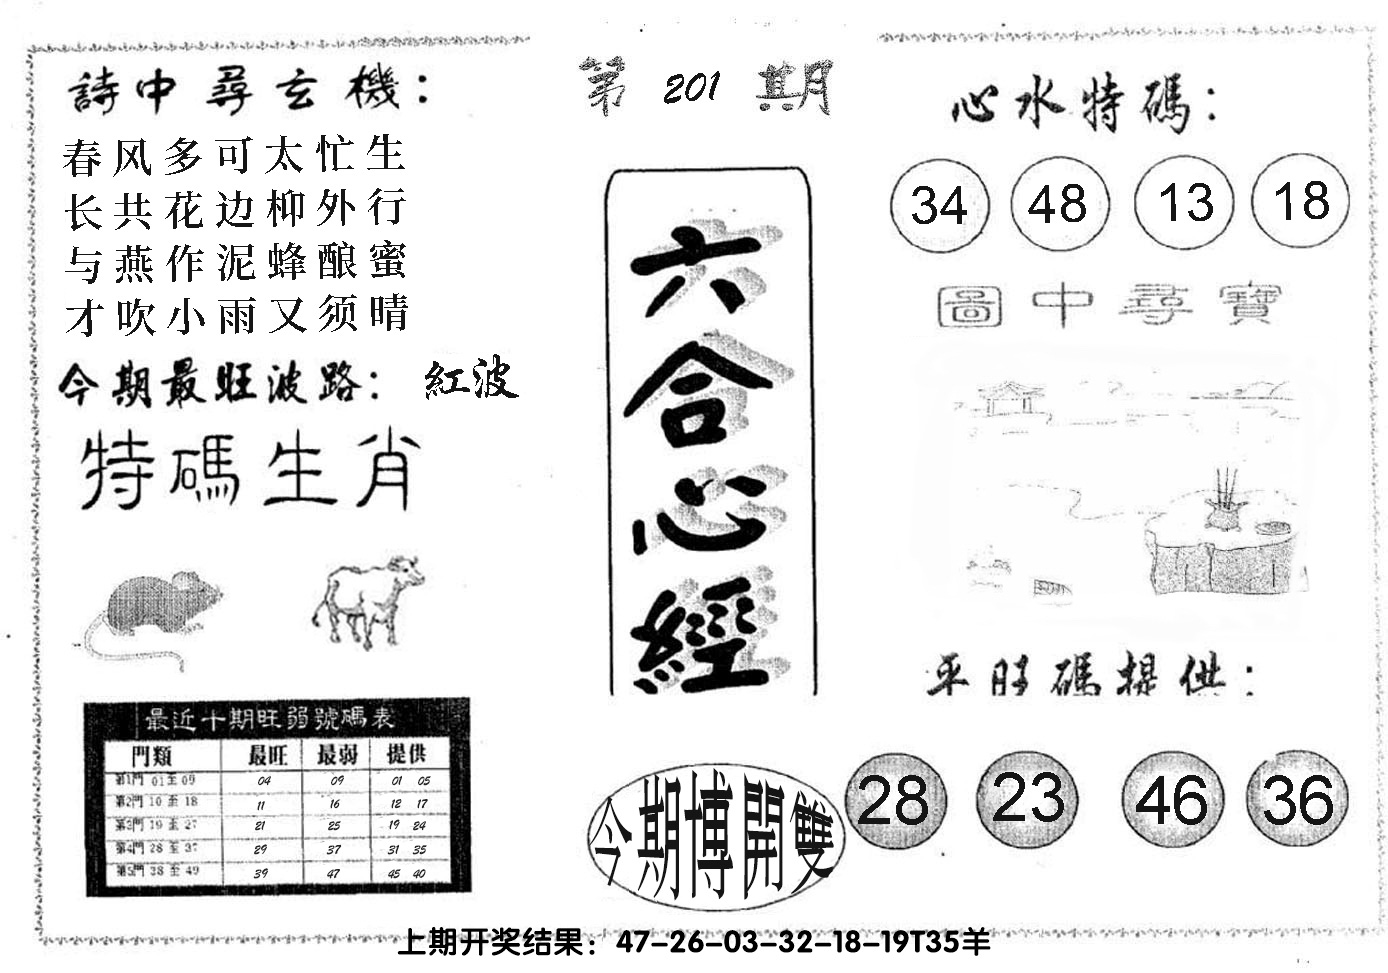 詩中尋玄機：
春风多可太忙生
长共花边柳外行
与燕作泥蜂酿蜜
才吹小雨又须晴
今期最旺波路： 紅波
特碼生肖
最近十期旺弱號碼表
門類 最旺 最弱 提供
第1門 01至09 04 09 01 05
第2門 10至18 11 16 12 17
第3門 19至27 21 25 19 24
第4門 28至37 29 37 31 35
第5門 38至49 39 47 45 40
第 201 期
六合心經
今期博開雙
心水特碼：
34 48 13 18
圖中尋寶
平旺碼提供：
28 23 46 36
上期开奖结果：47-26-03-32-18-19T35羊